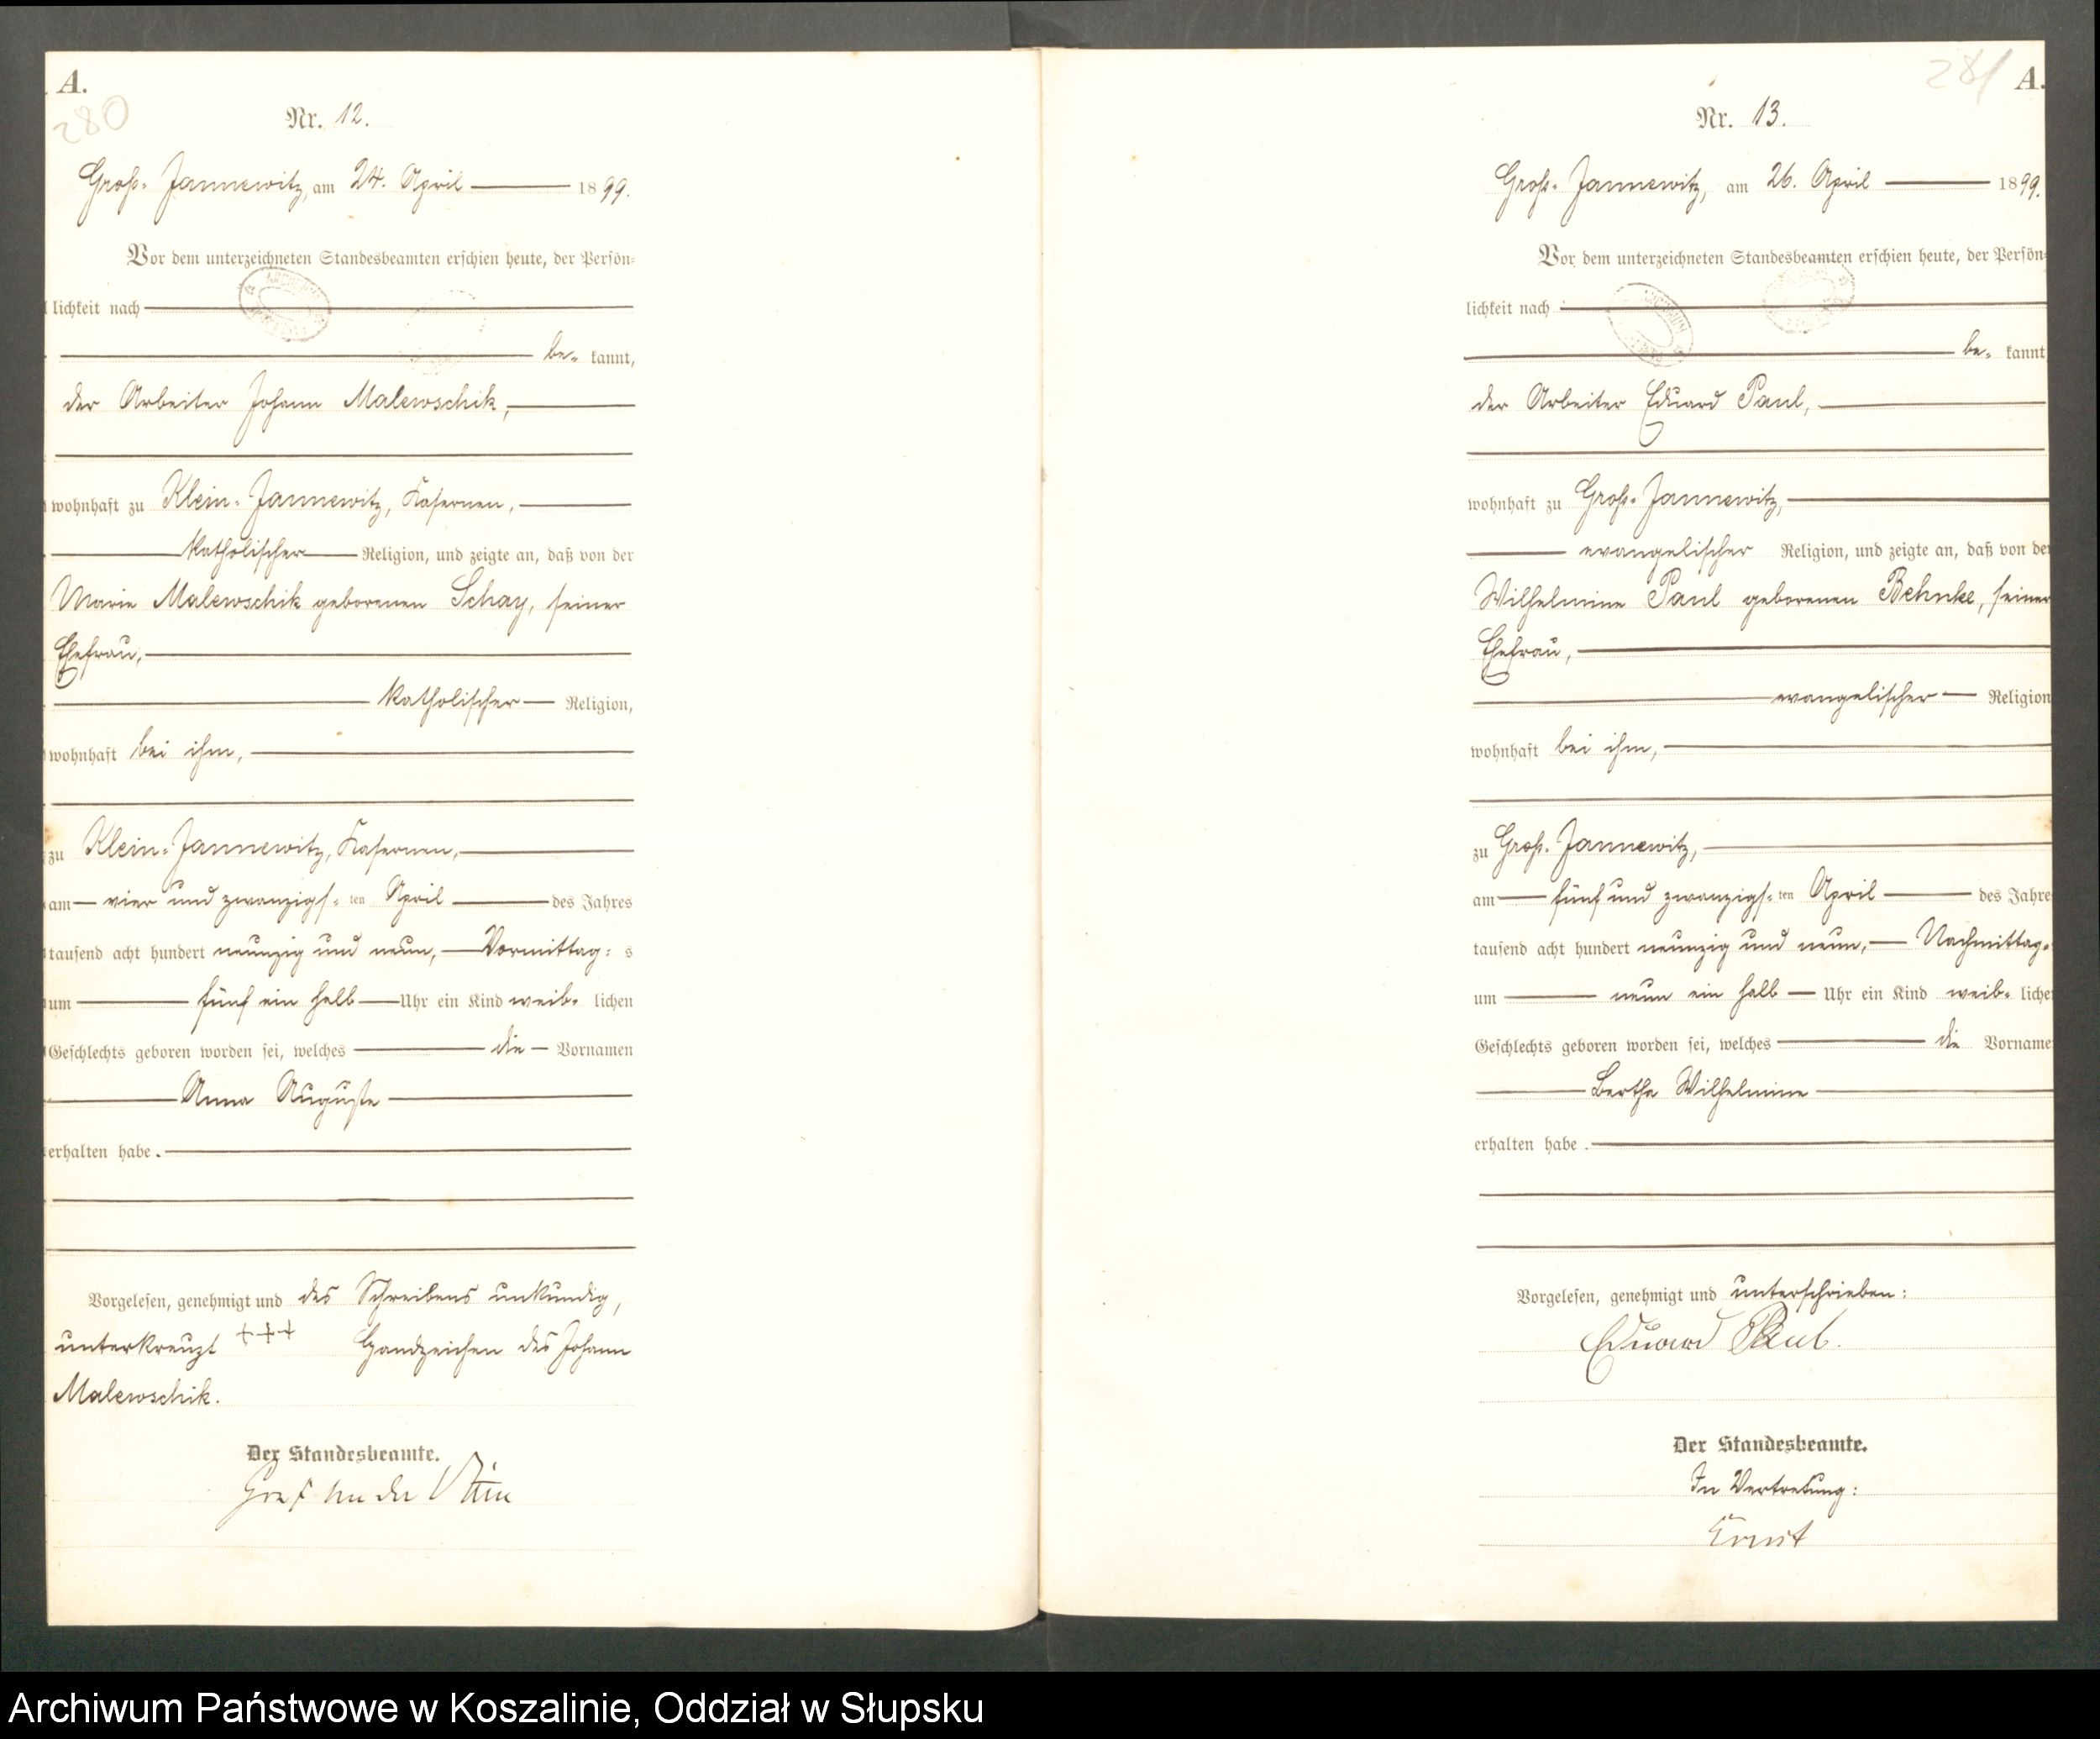 A.
280
Nr. 12.
Groß-Jannewitz, am 24. April 1899.
Vor dem unterzeichneten Standesbeamten erschien heute, der Persön-
lichkeit nach
be- kannt,
der Arbeiter Johann Malewschik,
wohnhaft zu Klein-Jannewitz, Kasernen,
katholischer Religion, und zeigte an, daß von der
Marie Malewschik geborenen Schay, seiner
Ehefrau,
katholischer Religion,
wohnhaft bei ihm,
zu Klein-Jannewitz, Kasernen,
am vier und zwanzigs-ten April des Jahres
tausend acht hundert neunzig und neun, Vormittag-s
um fünf ein halb Uhr ein Kind weib-lichen
Geschlechts geboren worden sei, welches die Vornamen
Anna Auguste
erhalten habe.
Vorgelesen, genehmigt und des Schreibens unkundig,
unterkreuzt +++ Handzeichen des Johann
Malewschik.
Der Standesbeamte.
Graf
281
A.
Nr. 13.
Groß-Jannewitz, am 26. April 1899.
Vor dem unterzeichneten Standesbeamten erschien heute, der Persön-
lichkeit nach
be- kannt
der Arbeiter Eduard Paul,
wohnhaft zu Groß-Jannewitz,
evangelischer Religion, und zeigte an, daß von der
Wilhelmine Paul geborenen Behnke, seiner
Ehefrau,
evangelischer Religion
wohnhaft bei ihm,
zu Groß-Jannewitz,
am fünf und zwanzigs-ten April des Jahre
tausend acht hundert neunzig und neun, Nachmittag-
um neun ein halb Uhr ein Kind weib-liche
Geschlechts geboren worden sei, welches die Vorname
Bertha Wilhelmine
erhalten habe.
Vorgelesen, genehmigt und unterschrieben:
Eduard Paul.
Der Standesbeamte.
In Vertretung:
Ernst
Archiwum Państwowe w Koszalinie, Oddział w Słupsku